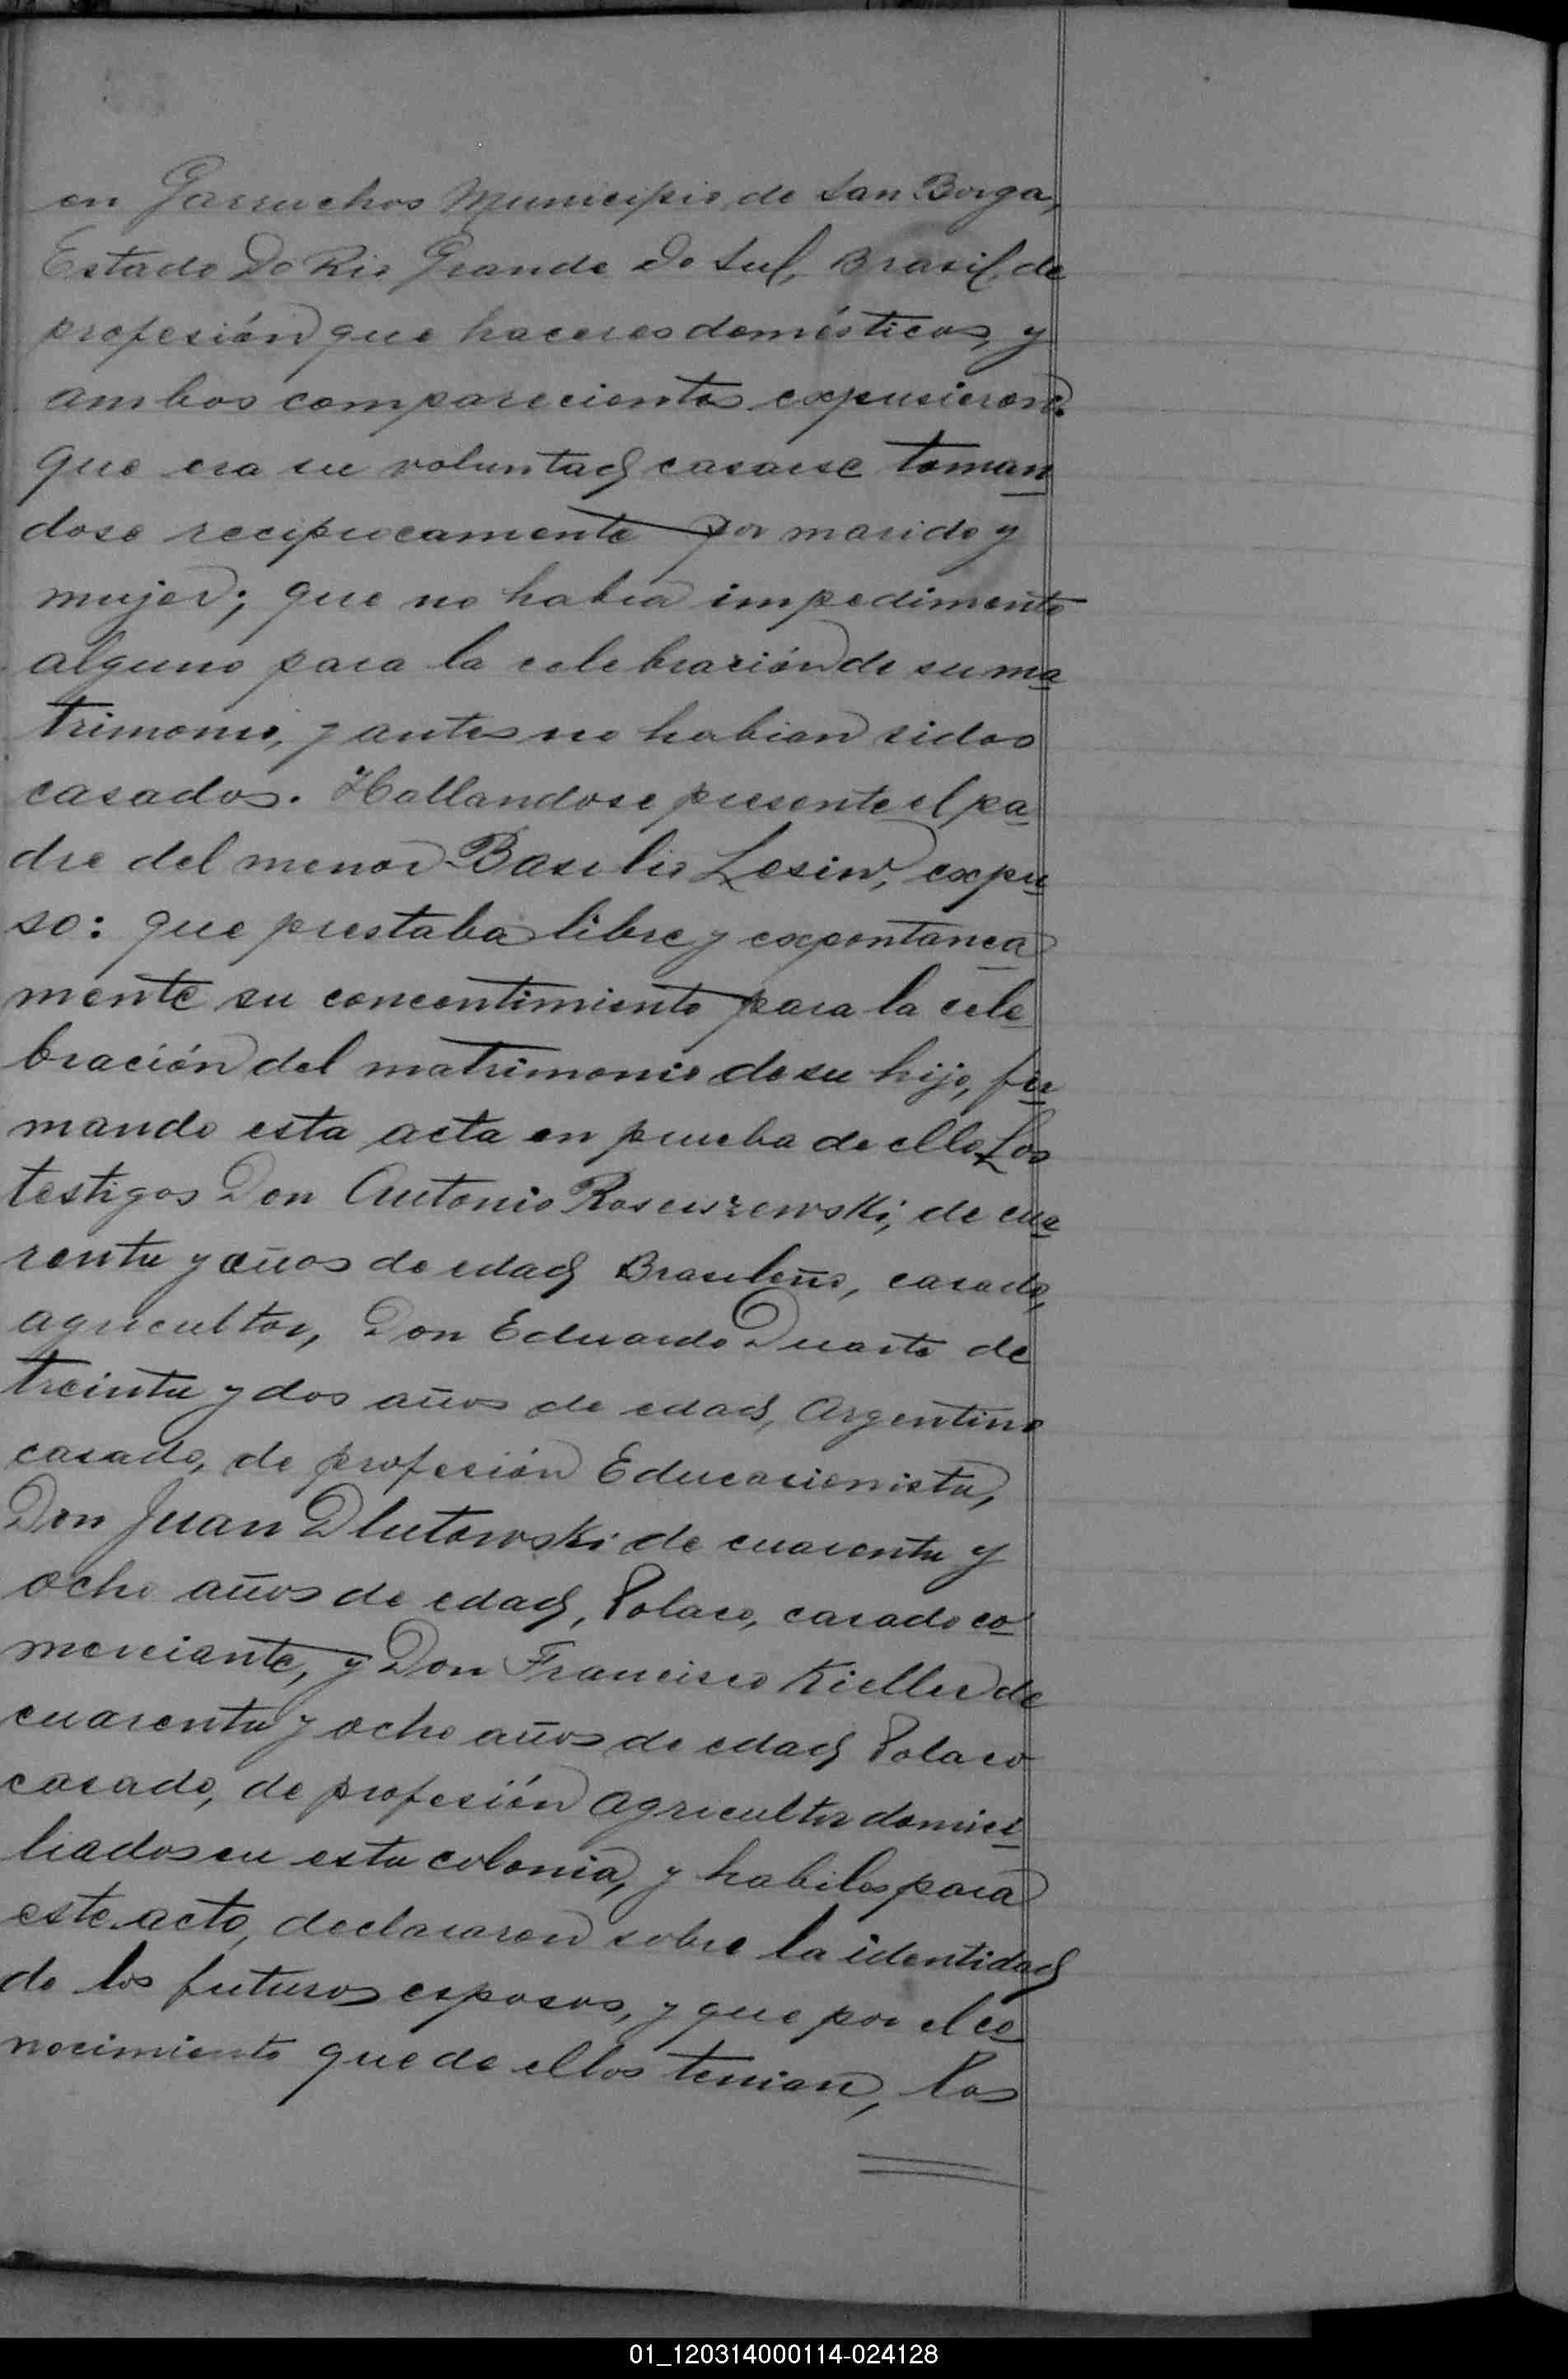 en Garruchos Municipio de San Borga,
Estado Do Rio Grande do Sul, Brasil, de
profesión que haceres domésticos, y
ambos comparecientes expusieron:
que era su voluntad casarse toman
dose reciprocamente por marido y
mujer; que no habia impedimento
alguno para la celebración de su ma
trimonio, y antes no habian sidos
casados. Hallandose presente el pa
dre del menor Basilio Lesiw, expu
so: que prestaba libre y expontanea
mente su concentimiento para la cele
bración del matrimonio de su hijo, fir
mando esta acta en prueba de ello. Los
testigos Don Antonio de cua
renta y años de edad Brasileño, casado,
agricultor, Don Eduardo Duarte de
treinta y dos años de edad, Argentino
casado, de profesión Educacionista,
Don Juan Dlutowski de cuarenta y
ocho años de edad, Polaco, casado co
merciante, y Don Francisco Kieller de
cuarenta y ocho años de edad Polaco
casado, de profesión agricultor domici
liados en esta colonia, y habiles para
este acto, declararon sobre la identidad
de los futuros esposos, y que por el co
nocimiento que de ellos tenian, los
01_120314000114-024128